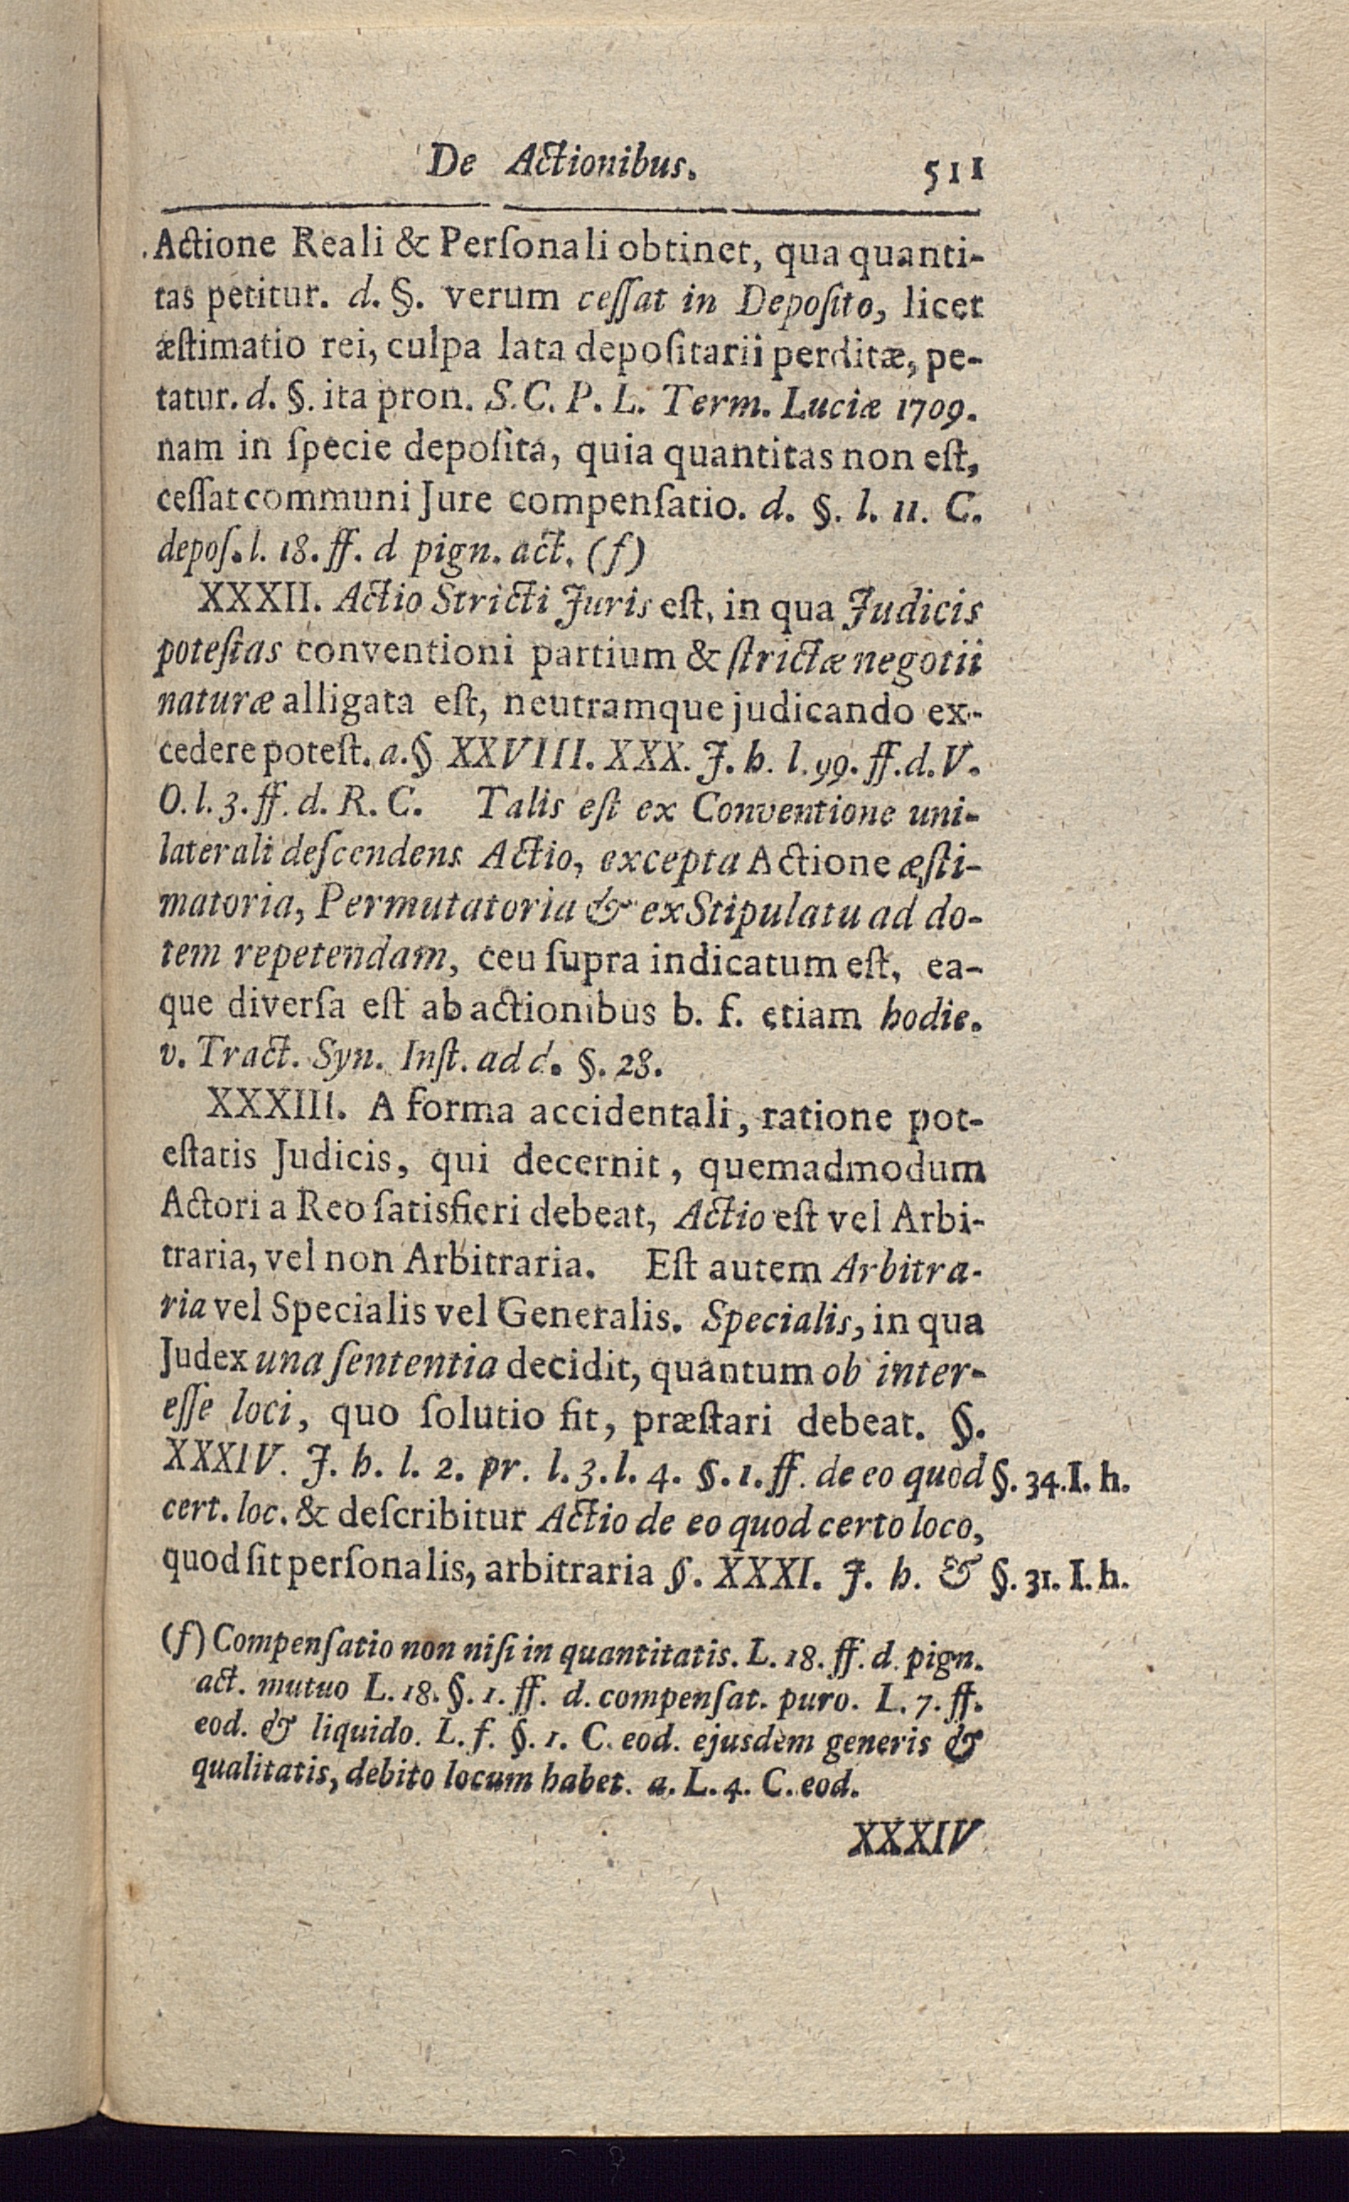 De Actionibus. 511
Actione Reali & Perſonali obtinet, qua quanti-
tas petitur. d. §. verum ceſſat in Depoſito, licet
æſtimatio rei, culpa lata depoſitarii perditæ, pe-
tatur. d. §. ita pron. S. C. P. L. Term. Luciæ 1709.
nam in ſpecie depoſita, quia quantitas non eſt,
ceſſat communi Jure compenſatio. d. §. l. 11. C.
depoſ. l. 18. ff. d pign. act. (f)
XXXII. Actio Stricti Juris eſt, in qua Judicis
poteſtas conventioni partium & ſtrictæ negotii
naturæ alligata eſt, neutramque judicando ex-
cedere poteſt. a. § XXVIII. XXX. J. h. l. 99. ff. d. V.
O. l. 3. ff. d. R. C. Talis eſt ex Conventione uni-
laterali deſcendens Actio, excepta Actione æſti-
matoria, Permutatoria & ex Stipulatu ad do-
tem repetendam, ceu ſupra indicatum eſt, ea-
que diverſa eſt ab actionibus b. f. etiam hodie.
v. Tract. Syn. Inſt. ad d. §. 28.
XXXIII. A forma accidentali, ratione pot-
eſtatis Judicis, qui decernit, quemadmodum
Actori a Reo ſatisfieri debeat, Actio eſt vel Arbi-
traria, vel non Arbitraria. Eſt autem Arbitra-
ria vel Specialis vel Generalis. Specialis, in qua
Judex una ſententia decidit, quantum ob inter-
eſſe loci, quo ſolutio fit, præſtari debeat. §.
XXXIV. J. h. l. 2. pr. l. 3. l. 4. §. 1. ff. de eo quod §. 34. I. h.
cert. loc. & deſcribitur Actio de eo quod certo loco,
quod ſit perſonalis, arbitraria §. XXXI. J. h. & §. 31. I. h.
(f) Compenſatio non niſi in quantitatis. L. 18. ff. d. pign.
act. mutuo L. 18. §. 1. ff. d. compenſat. puro. L. 7. ff.
eod. & liquido. L. f. §. 1. C. eod. ejusdem generis &
qualitatis, debito locum habet. a. L. 4. C. eod.
XXXIV